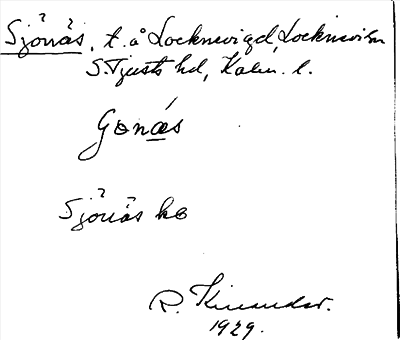 Sjönäs, t. å Locknevi gd, Locknevi sn
S. Tjusts hd, Kalm. l.
Gonäs
Sjönäs ko
R. Kinander.
1929.